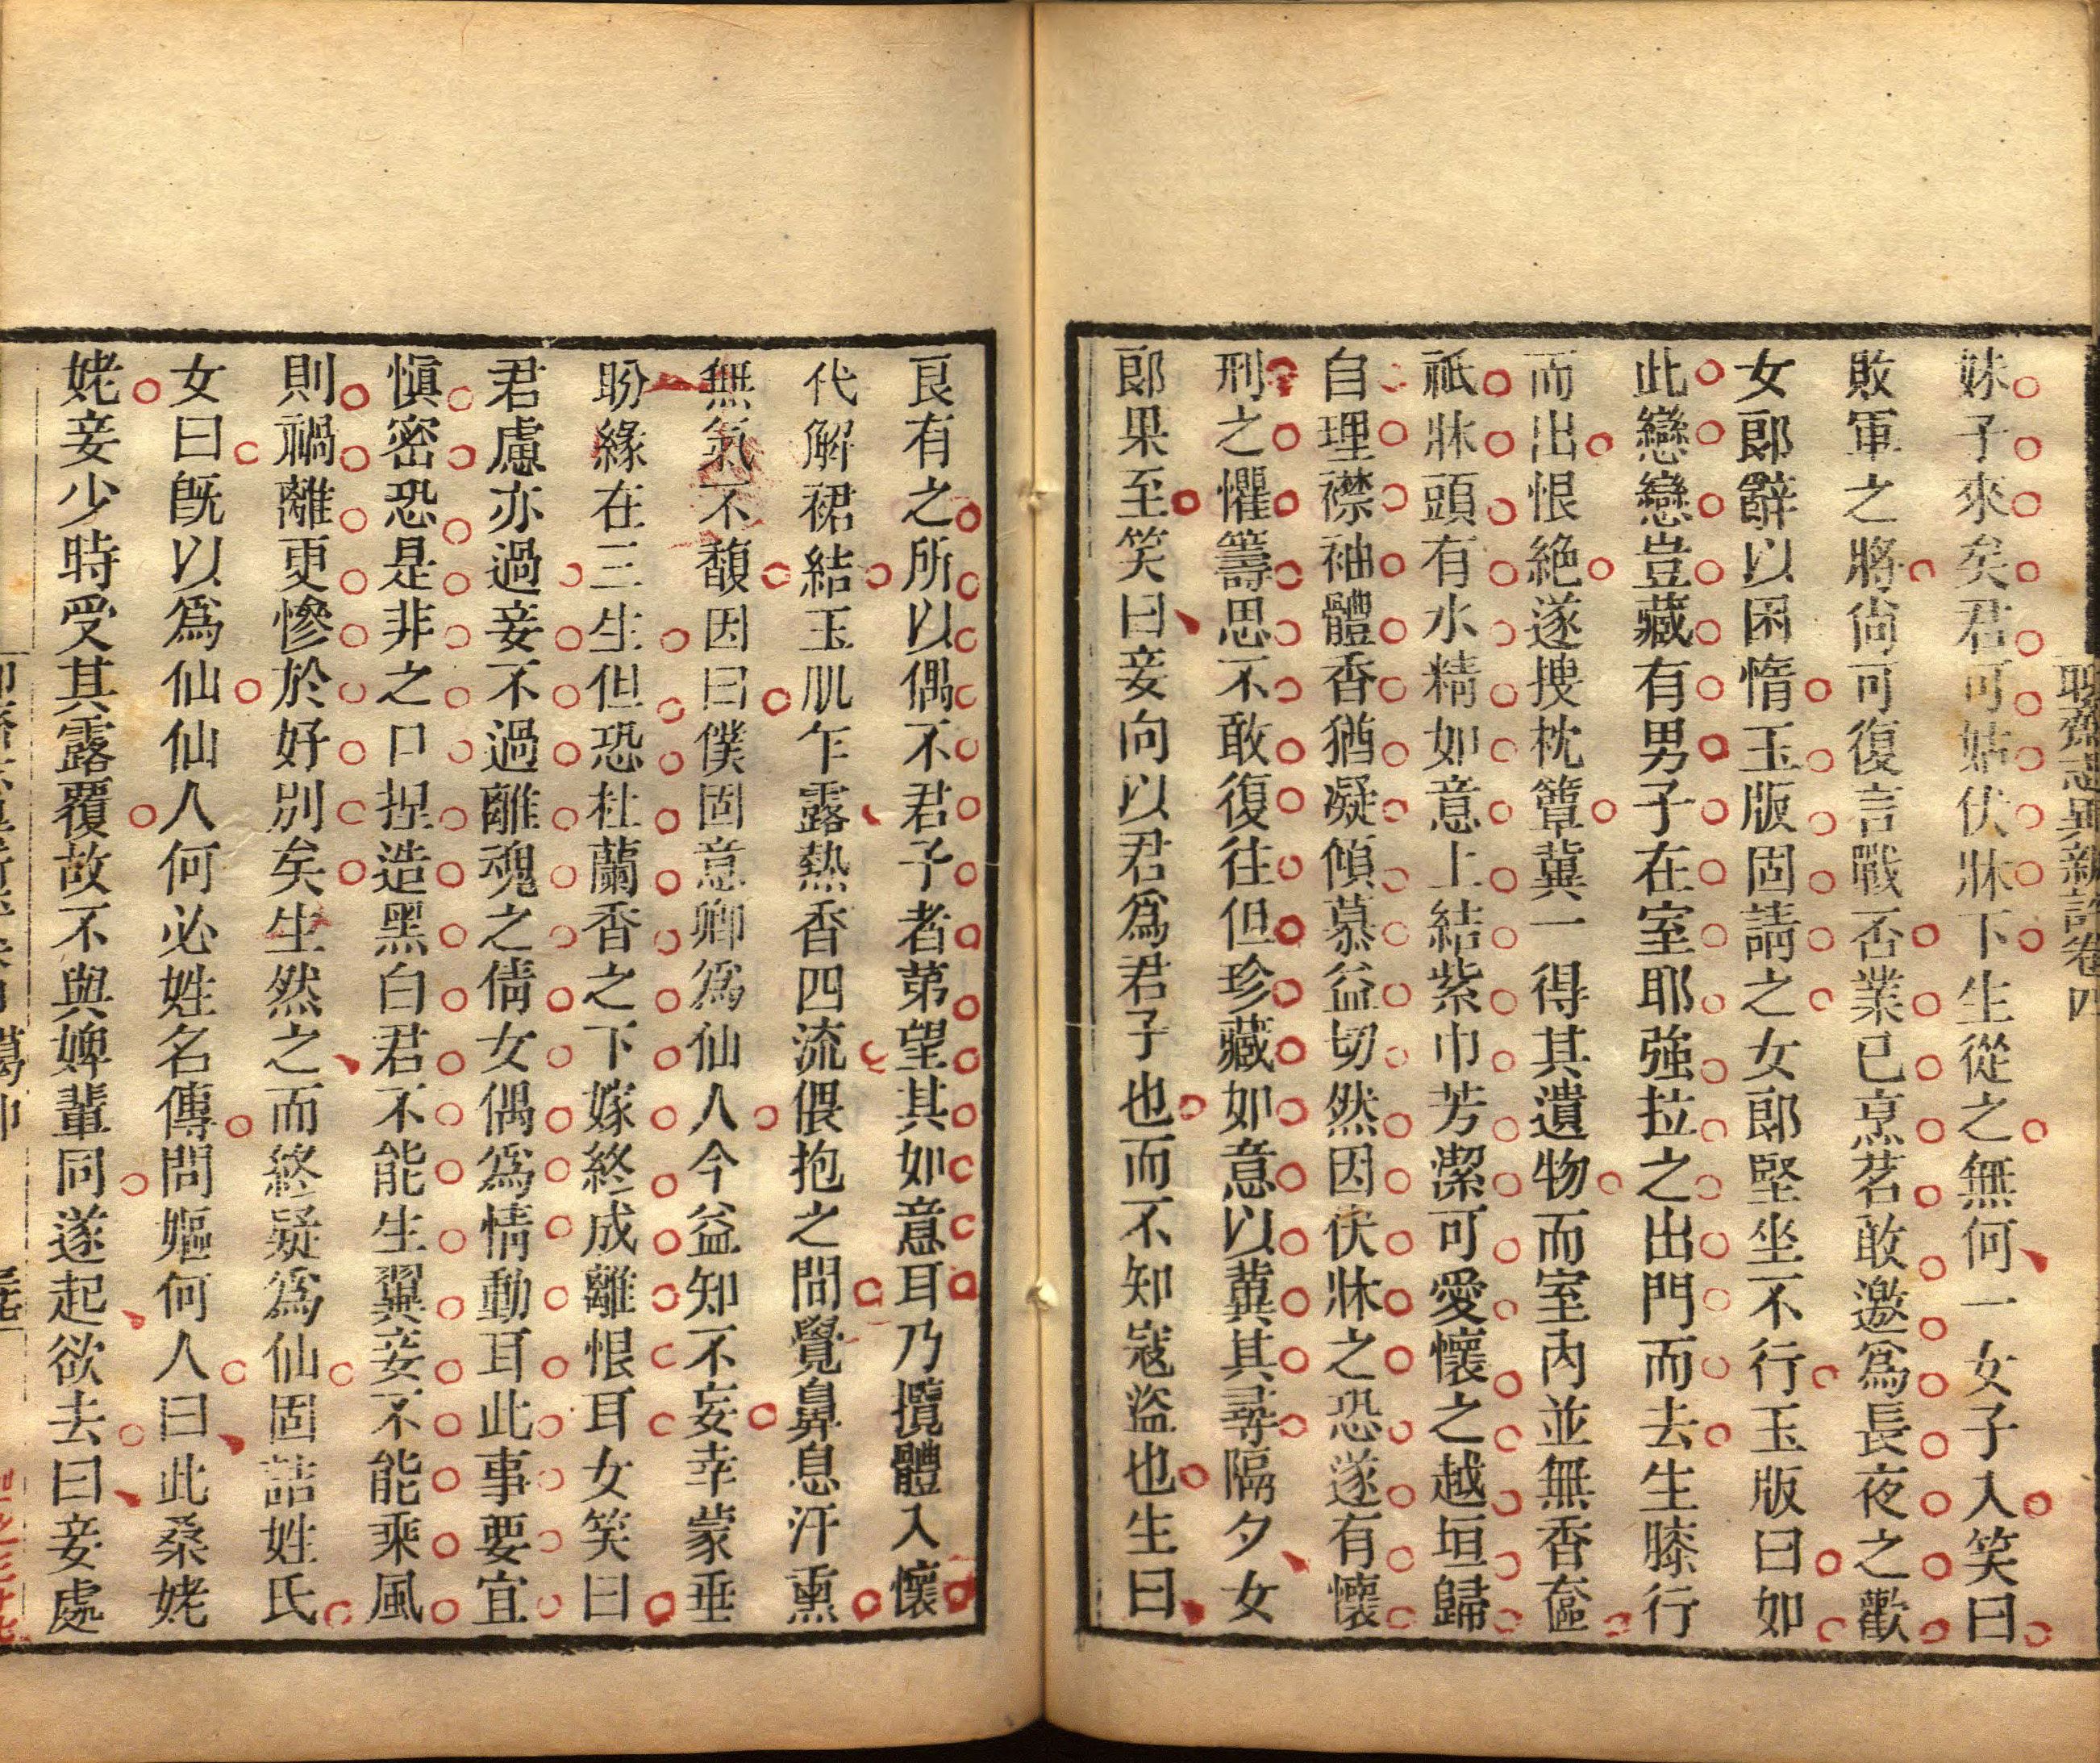 聊齋志異新評卷四
妹子來矣君可姑伏牀下生從之無何一女子入笑曰
敗軍之將尚可復言戰否業已烹茗敢邀爲長夜之歡
女郎辭以困惰玉版固請之女郎堅坐不行玉版曰如
此戀戀豈藏有男子在室耶強拉之出門而去生膝行
而出恨絕遂搜枕簟冀一得其遺物而室內並無香奩
祇牀頭有水精如意上結紫巾芳潔可愛懷之越垣歸
自理襟袖體香猶凝傾慕益切然因伏牀之恐遂有懷
刑之懼籌思不敢復往但珍藏如意以冀其尋隔夕女
郎果至笑曰妾向以君爲君子也而不知寇盜也生曰
良有之所以偶不君子者第望其如意耳乃攬體入懷
代解裙結玉肌乍露熱香四流偎抱之間覺鼻息汗熏
無氣不馥因曰僕固意卿爲仙人今益知不妄幸蒙垂
盼緣在三生但恐杜蘭香之下嫁終成離恨耳女笑曰
君慮亦過妾不過離魂之倩女偶爲情動耳此事要宜
愼密恐是非之口捏造黑白君不能生翼妾不能乘風
則禍離更慘於好別矣生然之而終疑爲仙固詰姓氏
女曰旣以爲仙仙人何必姓名傳問嫗何人曰此桑姥
姥妾少時受其露覆故不與婢輩同遂起欲去曰妾處